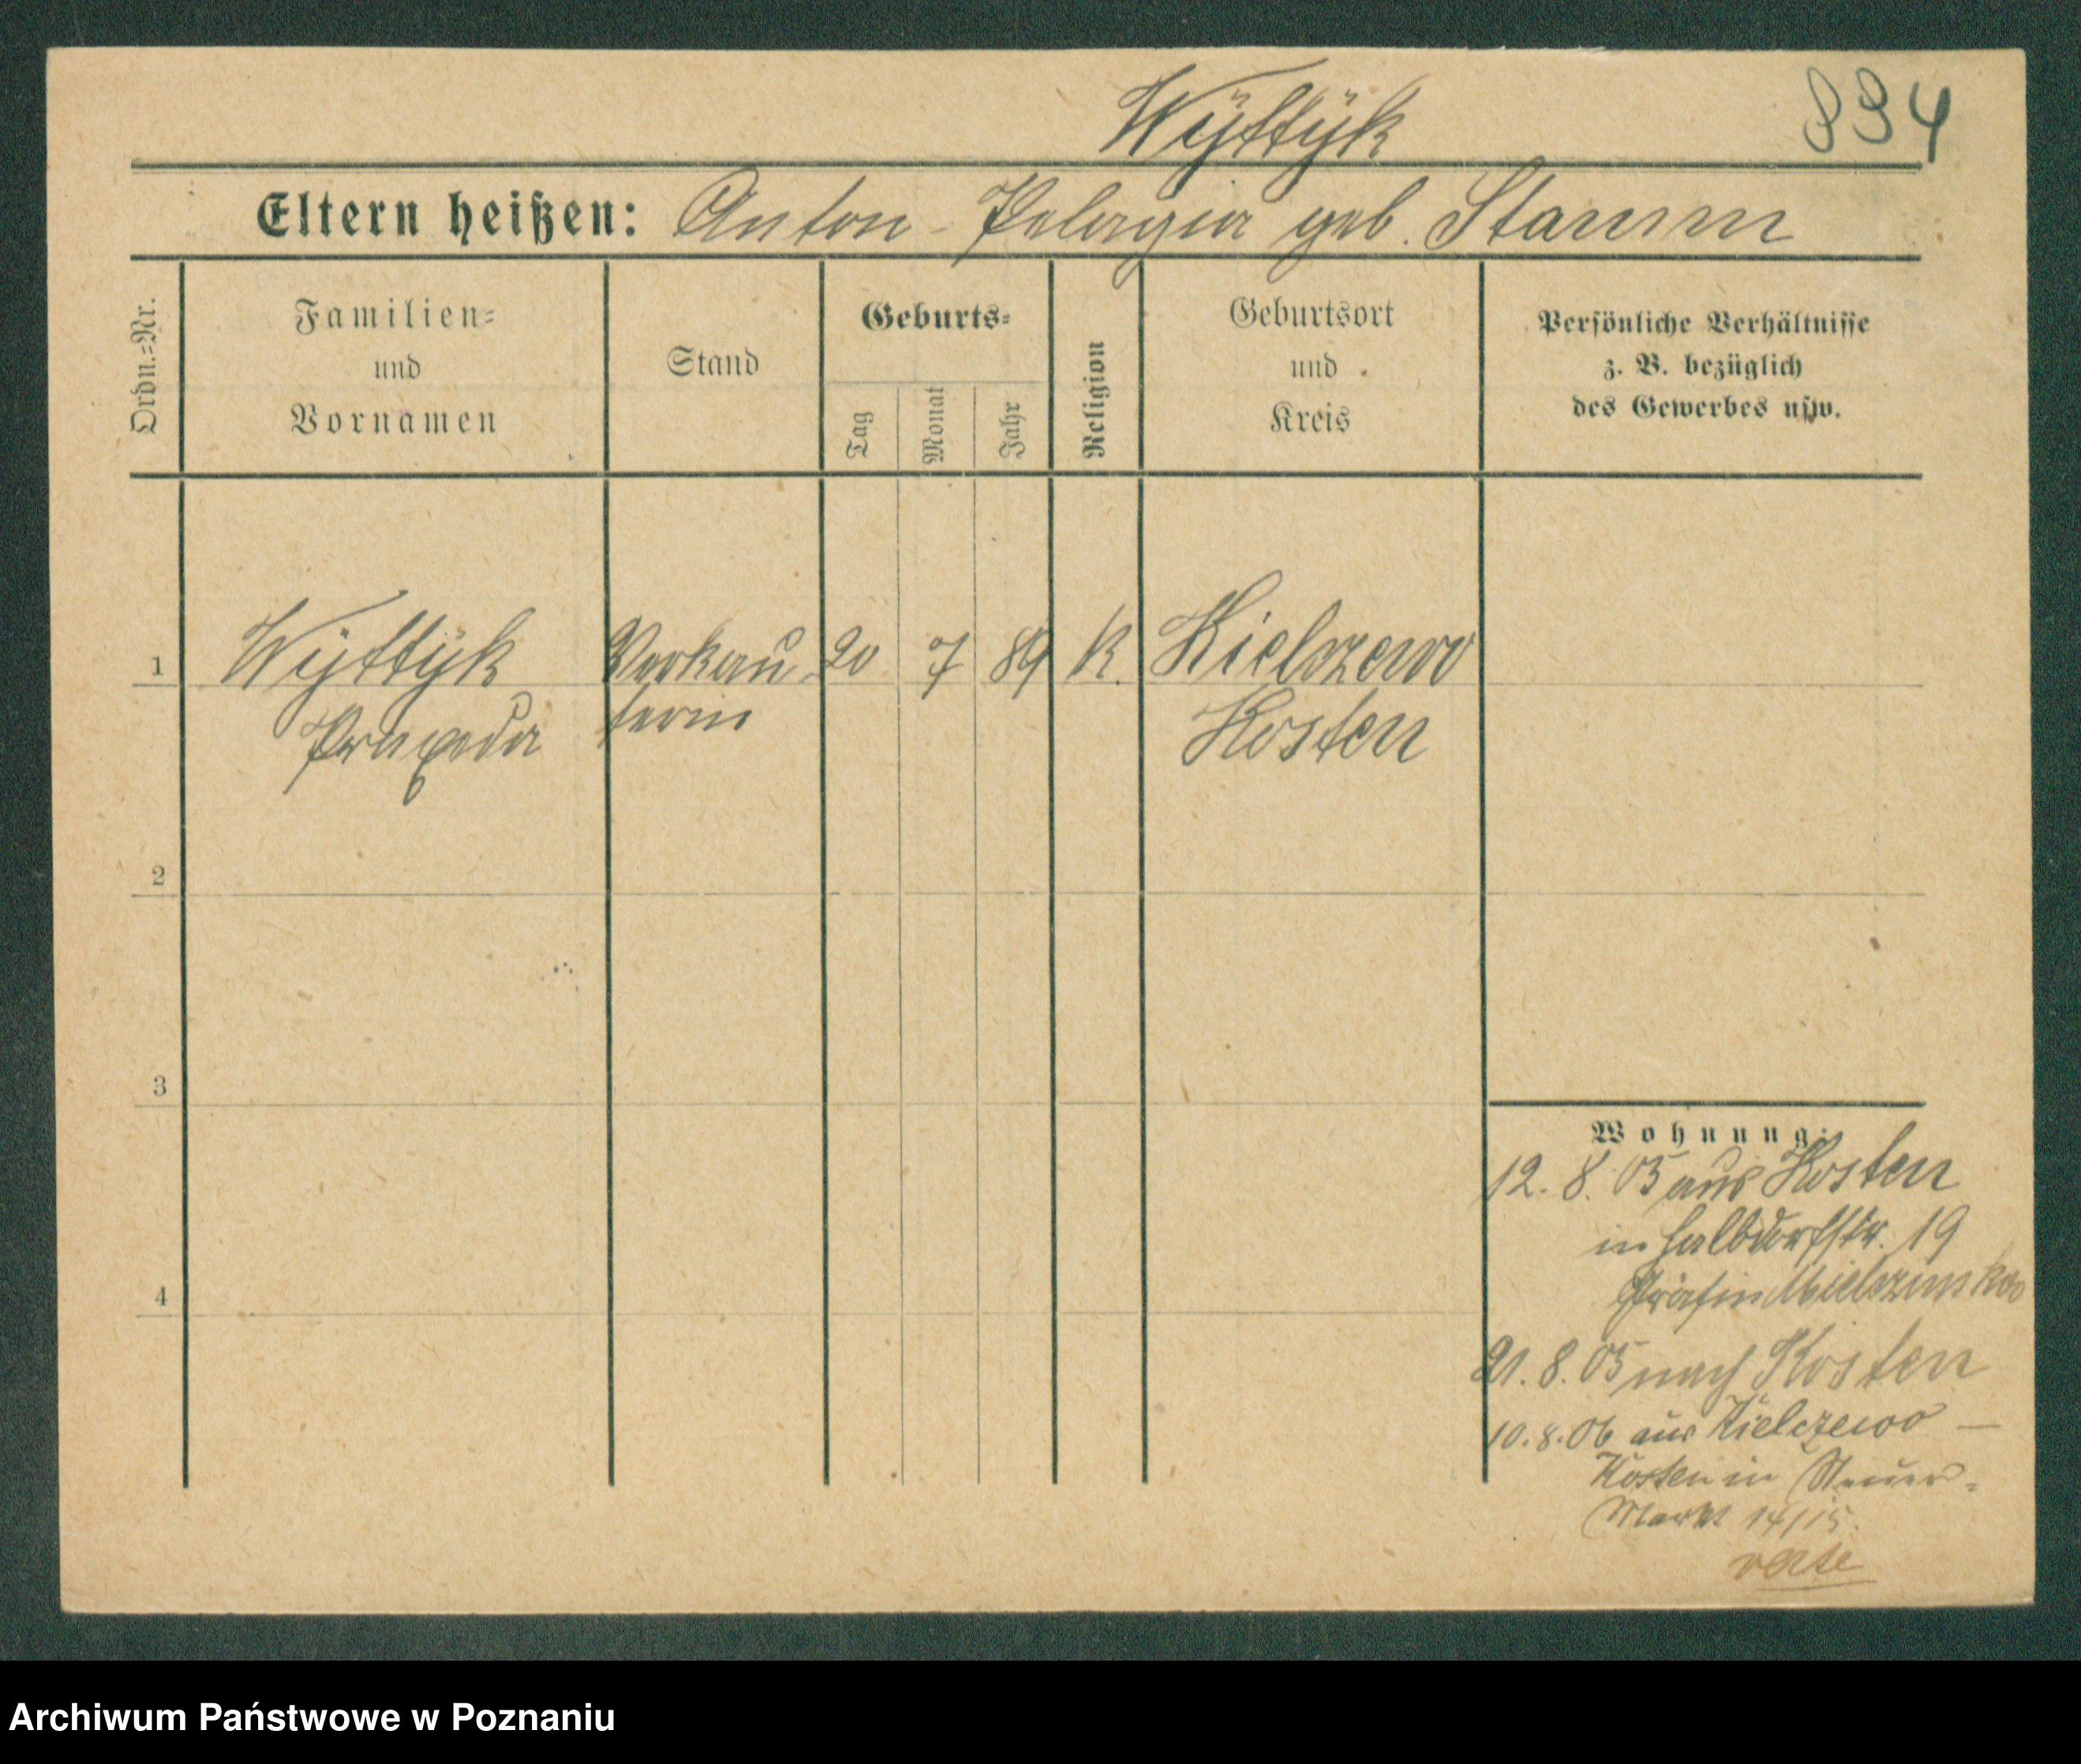 Wÿttÿk
894
Eltern heißen: Anton - Pelagia geb. Stamm
Ordn.=Nr.
Familien=
und
Vornamen
Stand
Geburts=
Tag
Monat
Jahr
Religion
Geburtsort
und
Kreis
Persönliche Verhältnisse
z. B. bezüglich
des Gewerbes usw.
1
Wÿttÿk
Praxeda
Verkäu-
ferin
20
7
89
K.
Kielszewo
Kosten
2
3
4
Wohnung:
12. 8. 05 aus Kosten
in Halbdorfstr. 19
Gräfin
21. 8. 05 nach Kosten
10. 8. 06 aus Kielczewo —
Kosten in
Markt 14/15.
verte
Archiwum Państwowe w Poznaniu